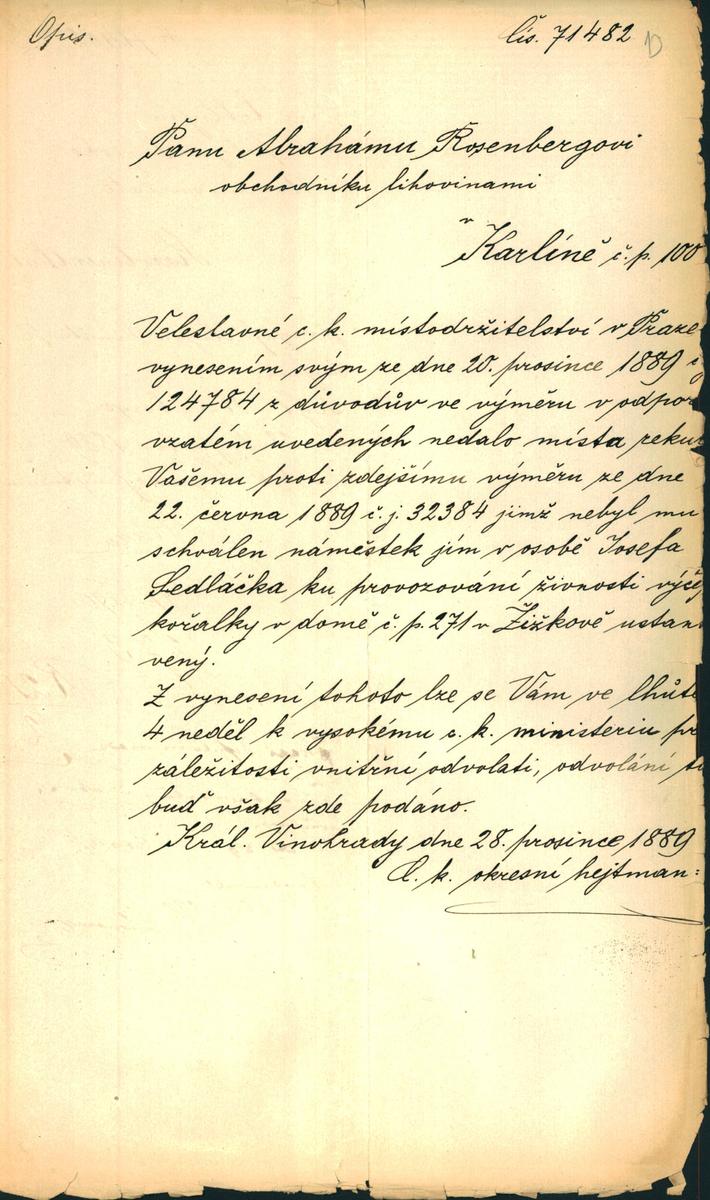 Opis.
čís. 71482
Panu Abrahámu Rosenbergovi
obchodníku lihovinami
v
Karlíně č. p. 100
Veleslavné c. k. místodržitelství v Praze
vynesením svým ze dne 20. prosince 1889 č
124784 z důvodův ve výměru v odpor
vzatém uvedených nedalo místa reku
Vašemu proti zdejšímu výměru ze dne
22. června 1889 č. j. 32384 jimž nebyl mu
schválen náměstek jím v osobě Josefa
Sedláčka ku provozování živnosti výče
kořalky v domě č. p. 271 v Žižkově ustan
vený.
Z vynesení tohoto lze se Vám ve lhůtě
4 neděl k vysokému c. k. ministeriu pr
záležitosti vnitřní odvolati, odvolání t
buď však zde podáno.
Král. Vinohrady dne 28. prosince 1889
C. k. okresní hejtman: